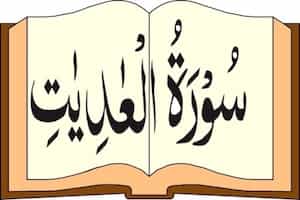 سُوْرَةُ الْعٰدِيٰتِ